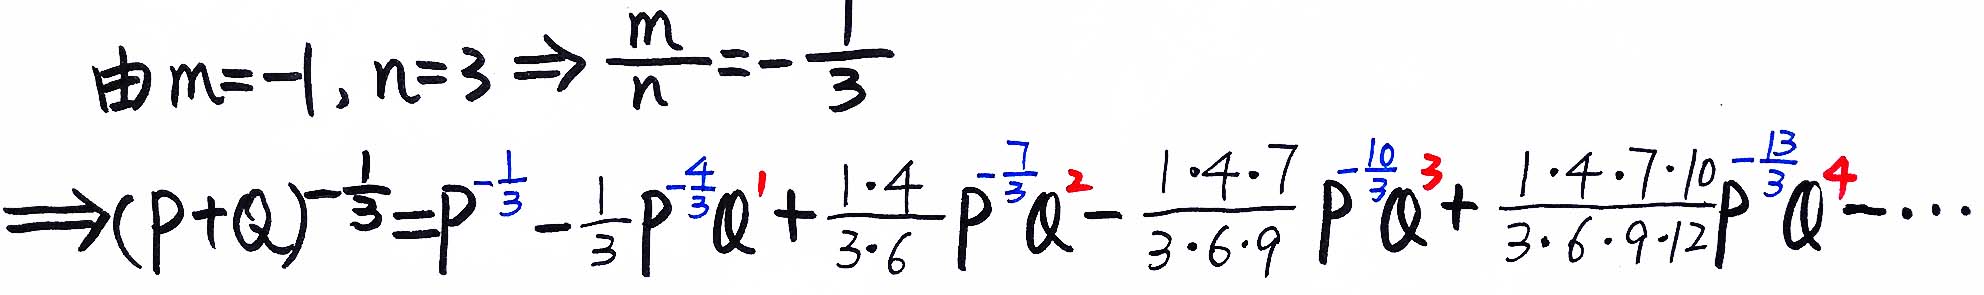 由 m=-1, n=3 ⇒ m/n = -1/3
⇒ (P+Q)^{-1/3} = P^{-1/3} - 1/3 P^{-4/3} Q^1 + (1·4)/(3·6) P^{-7/3} Q^2 - (1·4·7)/(3·6·9) P^{-10/3} Q^3 + (1·4·7·10)/(3·6·9·12) P^{-13/3} Q^4 - ···